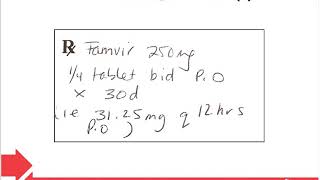 ℞ Famvir 250mg
1/4 tablet bid P.O
x 30d
(ie 31.25mg q 12hrs
P.O )